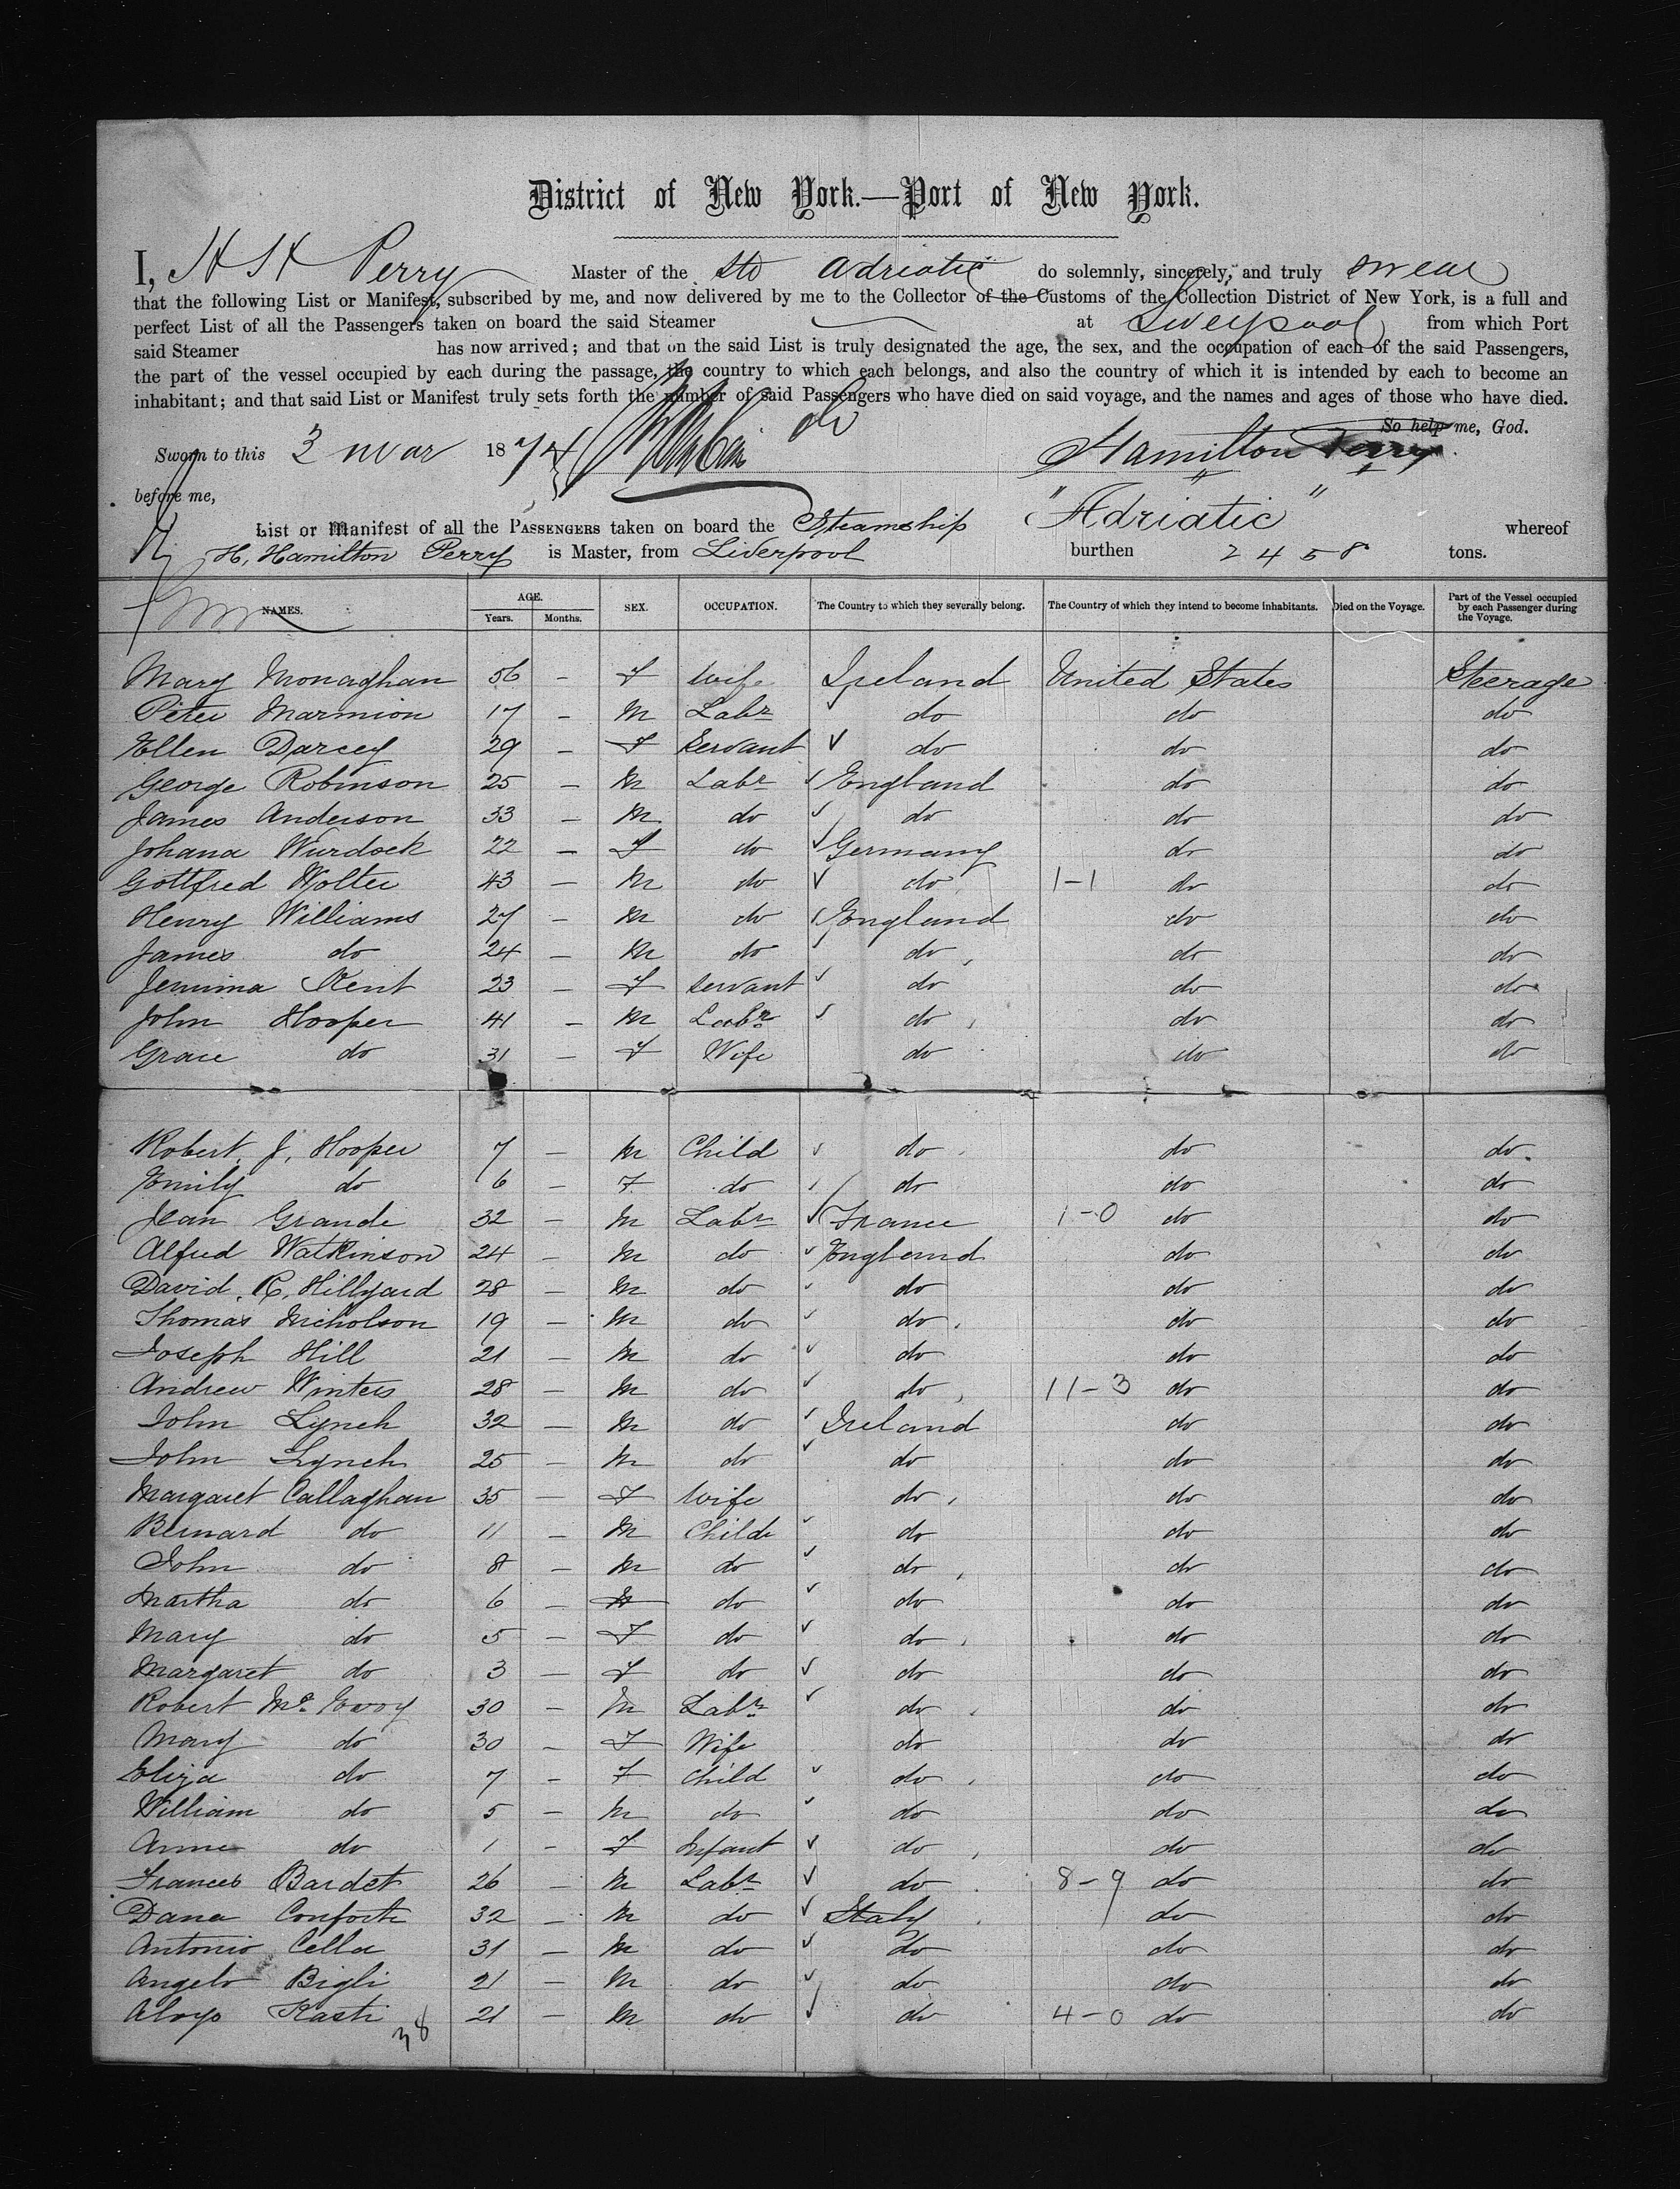 District of New York.—Port of New York.
I, H H Perry Master of the Str Adriatic do solemnly, sincerely, and truly swear
that the following List or Manifest, subscribed by me, and now delivered by me to the Collector of the Customs of the Collection District of New York, is a full and
perfect List of all the Passengers taken on board the said Steamer at Liverpool from which Port
said Steamer has now arrived; and that on the said List is truly designated the age, the sex, and the occupation of each of the said Passengers,
the part of the vessel occupied by each during the passage, the country to which each belongs, and also the country of which it is intended by each to become an
inhabitant; and that said List or Manifest truly sets forth the number of said Passengers who have died on said voyage, and the names and ages of those who have died.
So help me, God.
Sworn to this 3 Mar 1874 Hamilton Perry
before me,
List or Manifest of all the Passengers taken on board the Steamship "Adriatic" whereof
H. Hamilton Perry is Master, from Liverpool burthen 2458 tons.
NAMES. AGE. Years. Months. SEX. OCCUPATION. The Country to which they severally belong. The Country of which they intend to become inhabitants. Died on the Voyage. Part of the Vessel occupied by each Passenger during the Voyage.
Mary Monaghan 56 – F Wife Ireland United States Steerage
Peter Marmion 17 – M Labr do do do
Ellen Darcey 29 – F Servant do do do
George Robinson 25 – M Labr England do do
James Anderson 33 – M do do do do
Johana Wurdock 22 – F do Germany do do
Gottfred Wolter 43 – M do do 1–1 do do
Henry Williams 27 – M do England do do
James do 24 – M do do do do
Jemima Kent 23 – F Servant do do do
John Hooper 41 – M Labr do do do
Grace do 31 – F Wife do do do
Robert J. Hooper 7 – M Child do do do
Emily do 6 – F do do do do
Jean Grande 32 – M Labr France 1–0 do do
Alfred Watkinson 24 – M do England do do
David R. Hillyard 28 – M do do do do
Thomas Nicholson 19 – M do do do do
Joseph Hill 21 – M do do do do
Andrew Winters 28 – M do do 11–3 do do
John Lynch 32 – M do Ireland do do
John Lynch 25 – M do do do do
Margaret Callaghan 35 – F Wife do do do
Bernard do 11 – M Child do do do
John do 8 – M do do do do
Martha do 6 – do do do do
Mary do 5 – F do do do do
Margaret do 3 – F do do do do
Robert Mc Evoy 30 – M Labr do do do
Mary do 30 – F Wife do do do
Eliza do 7 – F Child do do do
William do 5 – M do do do do
Anne do 1 – F Infant do do do
Frances Bardet 26 – M Labr do 8–9 do do
Dana Conforte 32 – M do Italy do do
Antonio Cella 31 – M do do do do
Angelo Bigli 21 – M do do do do
Aloys Rasti 21 – M do do 4–0 do do
38